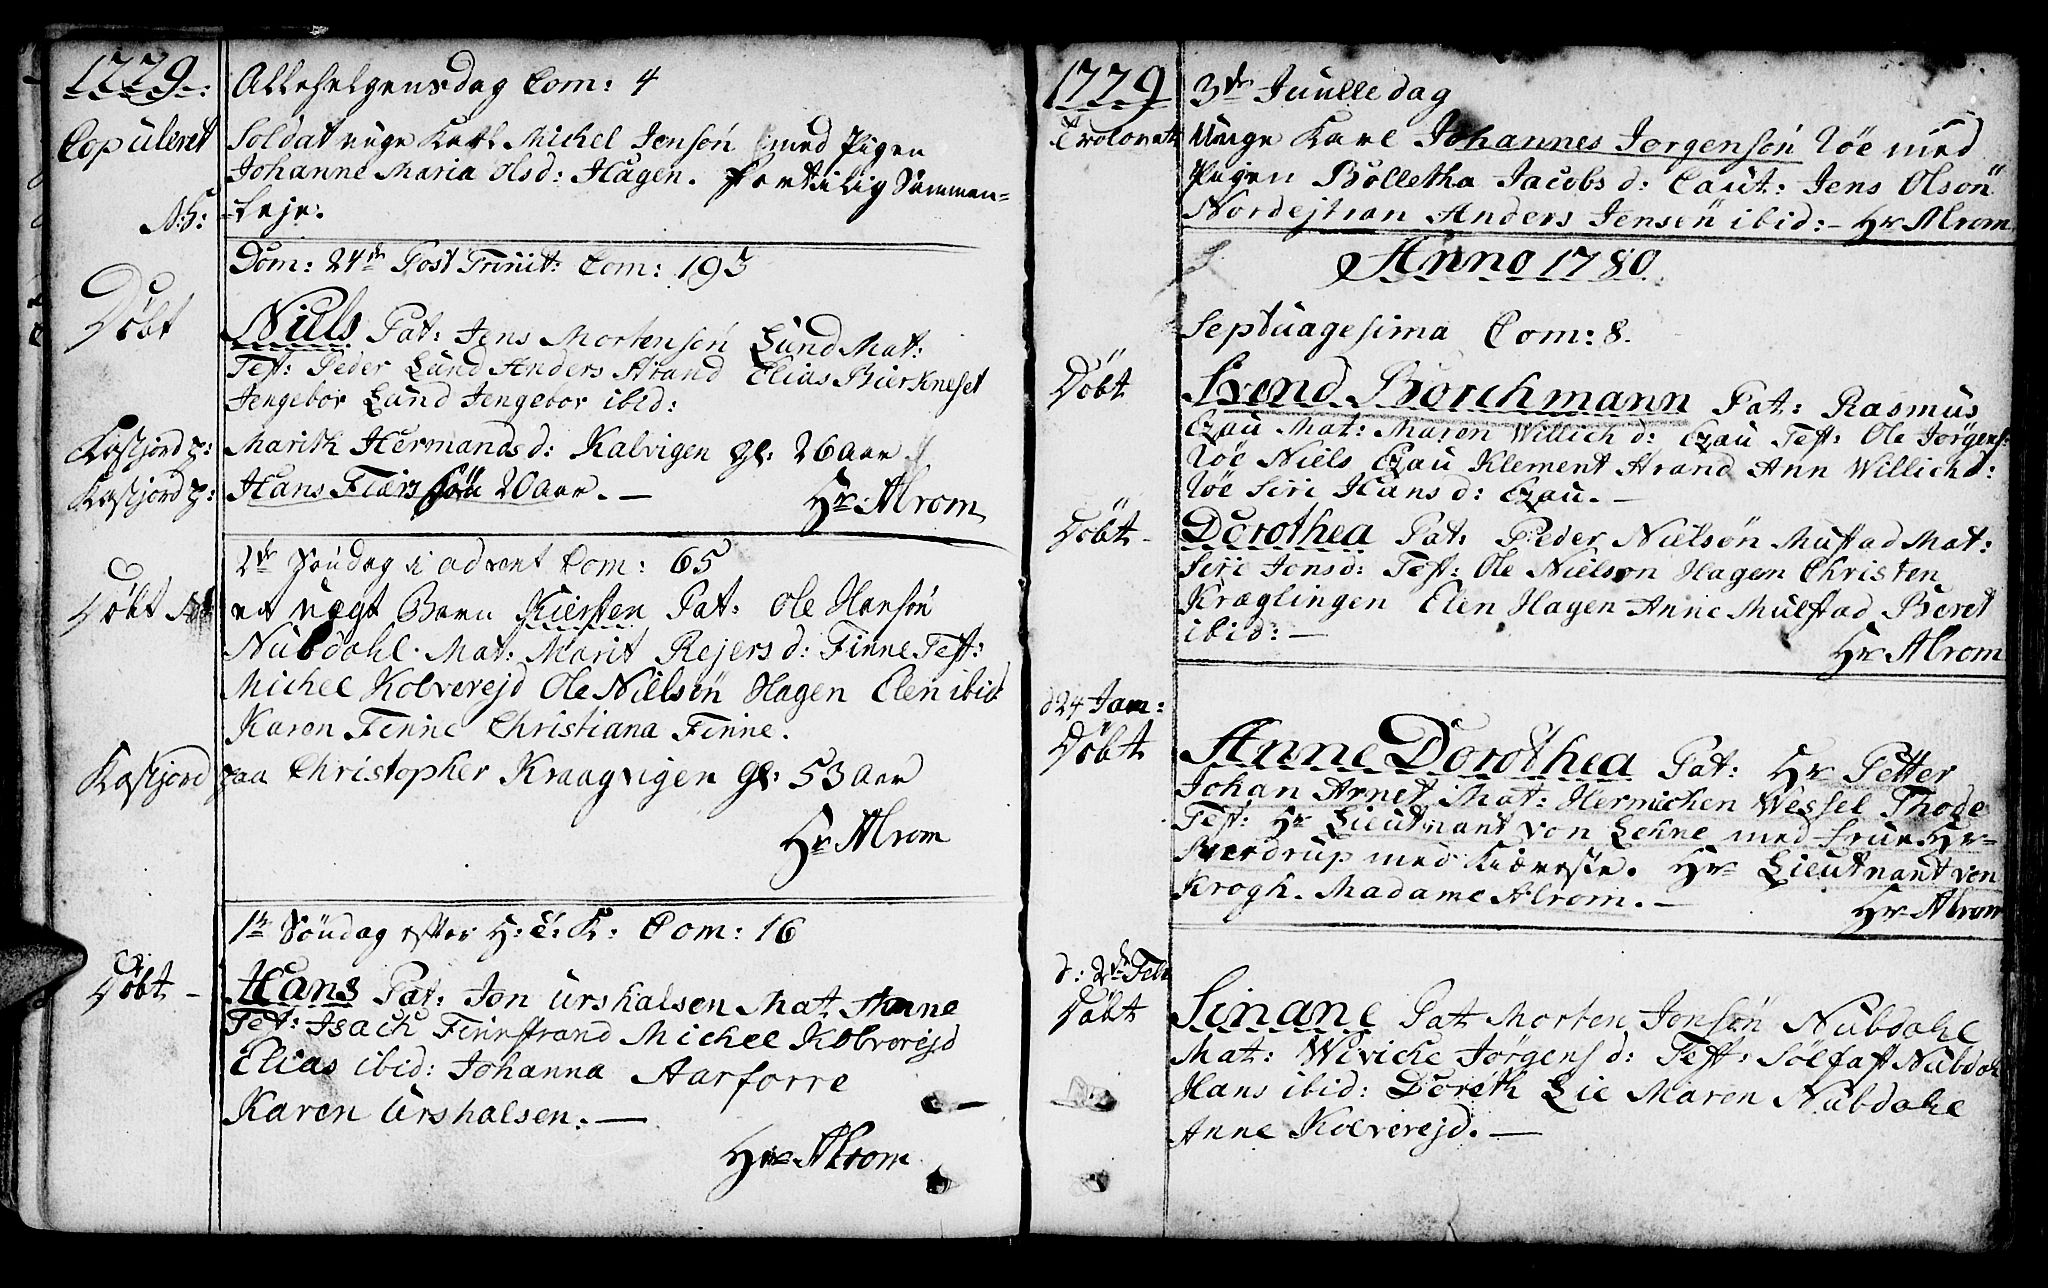 1779. Allehelgensdag Com: 4
Copuleret Soldat unge Karl Michel Jonsön med Pigen
Johanne Maria Olsd: Hagen. for tilig Sammen-
NB: -leje.
Dom: 24de Post Trinit: Com: 193
Döbt Niels Pat: Jens Mortensön Lund Mat:
Test: Peder Lund Anders Strand Elias Bierkneset
Jengebor Lund Jengebor ibid:
Kastjord p: Marith Hermandsd: Kalvigen gl: 26 Aar
Kastjord p: Hans Fiærssön 20 Aar. —
Hr Alrom
2de Söndag i advent Com: 65
Döbt et uægt Barn Kiersten Pat: Ole Hansön
Nubdahl. Mat: Marit Rejersd: Finne Test:
Michel Kolverejd Ole Nielsön Hagen Elen ibid:
Karen Finne Christiana Finne.
Kastjord paa Christopher Kraagvigen gl: 53 Aar
Hr Alrom
1te Söndag efter H: 3: K: Com: 16
Döbt - Hans Pat: Jon Urshalsen Mat Anne
Test: Isach Finnestrand Michel Kolverejd
Elias ibid: Johanna Aarforre
Karen Urshalsen. —
Hr Alrom
1779 3de Juulle dag
Trolovet Unge Karl Johannes Jörgensön Löe med
Pigen Bolletha Jacobsd: Caut: Jens Olsön
Nordejtran Anders Jensen ibid: - Hr Alrom
Anno 1780.
Septuagesima Com: 8.
Döbt Svend Borchmann Pat: Rasmus
Ezau Mat: Maren Willichd: Ezau Test: Ole Jörgens:
Löe Niels Ezau Klement Strand Ann Willichd:
Löe Siri Hansd: Ezau. —
Döbt - Dorothea Pat: Peder Nielsön Mulstad Mat:
Siri Jonsd: Test: Ole Nielson Hagen Christen
Kræglingen Elen Hagen Anne Mulstad Beret
ibid: —
Hr Alrom
d 24 Jan:
Döbt Anne Dorothea Pat: Hr Petter
Johan Arnet Mat: Hermichen Wessel Thode
Test: Hr Lieutnant von Lehne med frue Hr
Sverdrup med Kiæreste. Hr Lieutnant von
Krogh. Madame Alrom. —
Hr Alrom
d: 2de Feb
Döbt Sinane Pat: Morten Jonsön Nubdahl
Mat: Wiviche Jörgensd: Test: Sölfast Nubdal
Hans ibid: Doreth Lie Maren Nubdahl
Anne Kolverejd. —